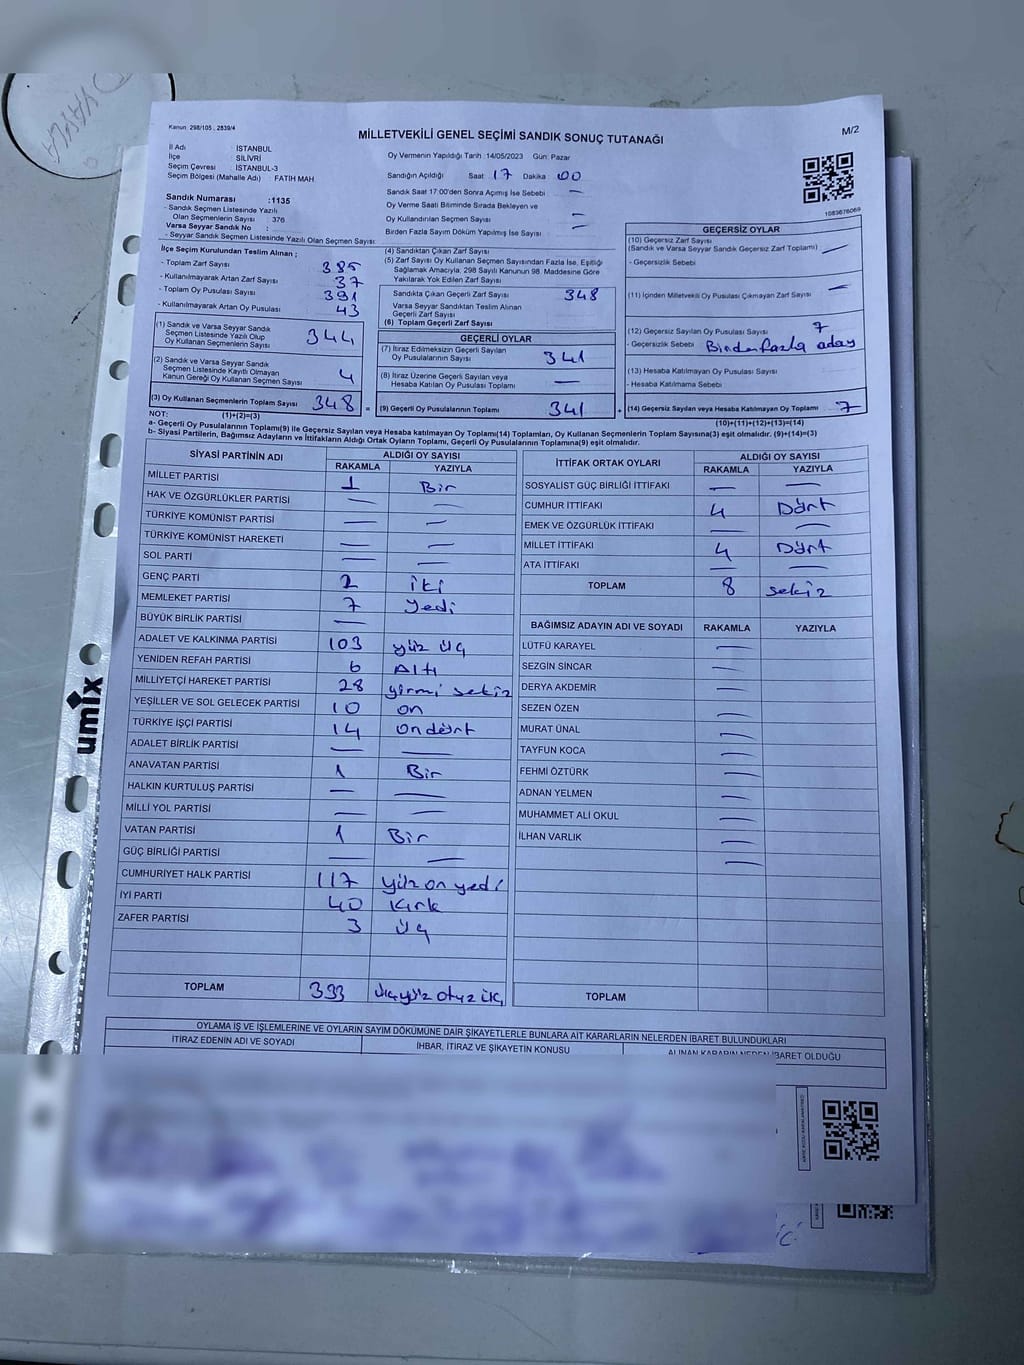 YAYLA
Kanun: 298/105, 2839/4
MİLLETVEKİLİ GENEL SEÇİMİ SANDIK SONUÇ TUTANAĞI
M/2
İl Adı : İSTANBUL
İlçe : SİLİVRİ
Seçim Çevresi : İSTANBUL-3
Seçim Bölgesi (Mahalle Adı) : FATİH MAH
Oy Vermenin Yapıldığı Tarih :14/05/2023 Gün: Pazar
Sandığın Açıldığı Saat 17 Dakika 00
Sandık Saat 17:00'den Sonra Açımış İse Sebebi —
Oy Verme Saati Bitiminde Sırada Bekleyen ve
Oy Kullandırılan Seçmen Sayısı —
Birden Fazla Sayım Döküm Yapılmış İse Sayısı —
Sandık Numarası :1135
- Sandık Seçmen Listesinde Yazılı
Olan Seçmenlerin Sayısı : 376
Varsa Seyyar Sandık No :
- Seyyar Sandık Seçmen Listesinde Yazılı Olan Seçmen Sayısı:
İlçe Seçim Kurulundan Teslim Alınan ;
- Toplam Zarf Sayısı 385
- Kullanılmayarak Artan Zarf Sayısı 37
- Toplam Oy Pusulası Sayısı 391
- Kullanılmayarak Artan Oy Pusulası 43
(1) Sandık ve Varsa Seyyar Sandık
Seçmen Listesinde Yazılı Olup
Oy Kullanan Seçmenlerin Sayısı 344
(2) Sandık ve Varsa Seyyar Sandık
Seçmen Listesinde Kayıtlı Olmayan
Kanun Gereği Oy Kullanan Seçmen Sayısı 4
(3) Oy Kullanan Seçmenlerin Toplam Sayısı 348 =
(1)+(2)=(3)
(4) Sandıktan Çıkan Zarf Sayısı
(5) Zarf Sayısı Oy Kullanan Seçmen Sayısından Fazla İse, Eşitliği
Sağlamak Amacıyla, 298 Sayılı Kanunun 98. Maddesine Göre
Yakılarak Yok Edilen Zarf Sayısı
Sandıkta Çıkan Geçerli Zarf Sayısı 348
Varsa Seyyar Sandıktan Teslim Alınan
Geçerli Zarf Sayısı
(6) Toplam Geçerli Zarf Sayısı
GEÇERLİ OYLAR
(7) İtiraz Edilmeksizin Geçerli Sayılan
Oy Pusulalarının Sayısı 341
(8) İtiraz Üzerine Geçerli Sayılan veya
Hesaba Katılan Oy Pusulası Toplamı —
(9) Geçerli Oy Pusulalarının Toplamı 341 +
1083676069
GEÇERSİZ OYLAR
(10) Geçersiz Zarf Sayısı
(Sandık ve Varsa Seyyar Sandık Geçersiz Zarf Toplamı) —
- Geçersizlik Sebebi
(11) İçinden Milletvekili Oy Pusulası Çıkmayan Zarf Sayısı —
(12) Geçersiz Sayılan Oy Pusulası Sayısı 7
- Geçersizlik Sebebi Birden fazla aday
(13) Hesaba Katılmayan Oy Pusulası Sayısı
- Hesaba Katılmama Sebebi
(14) Geçersiz Sayılan veya Hesaba Katılmayan Oy Toplamı 7
(10)+(11)+(12)+(13)=(14)
NOT:
a- Geçerli Oy Pusulalarının Toplamı(9) ile Geçersiz Sayılan veya Hesaba Katılmayan Oy Toplamı(14) Toplamları, Oy Kullanan Seçmenlerin Toplam Sayısına(3) eşit olmalıdır. (9)+(14)=(3)
b- Siyasi Partilerin, Bağımsız Adayların ve İttifakların Aldığı Ortak Oyların Toplamı, Geçerli Oy Pusulalarının Toplamına(9) eşit olmalıdır.
SİYASİ PARTİNİN ADI ALDIĞI OY SAYISI
RAKAMLA YAZIYLA
MİLLET PARTİSİ 1 Bir
HAK VE ÖZGÜRLÜKLER PARTİSİ — —
TÜRKİYE KOMÜNİST PARTİSİ — —
TÜRKİYE KOMÜNİST HAREKETİ — —
SOL PARTİ — —
GENÇ PARTİ 2 iki
MEMLEKET PARTİSİ 7 Yedi
BÜYÜK BİRLİK PARTİSİ —
ADALET VE KALKINMA PARTİSİ 103 yüz üç
YENİDEN REFAH PARTİSİ 6 Altı
MİLLİYETÇİ HAREKET PARTİSİ 28 yirmi sekiz
YEŞİLLER VE SOL GELECEK PARTİSİ 10 on
TÜRKİYE İŞÇİ PARTİSİ 14 ondört
ADALET BİRLİK PARTİSİ — —
ANAVATAN PARTİSİ 1 Bir
HALKIN KURTULUŞ PARTİSİ — —
MİLLİ YOL PARTİSİ — —
VATAN PARTİSİ 1 Bir
GÜÇ BİRLİĞİ PARTİSİ — —
CUMHURİYET HALK PARTİSİ 117 yüz on yedi
İYİ PARTİ 40 Kırk
ZAFER PARTİSİ 3 üç
TOPLAM 333 üçyüz otuz üç
İTTİFAK ORTAK OYLARI ALDIĞI OY SAYISI
RAKAMLA YAZIYLA
SOSYALİST GÜÇ BİRLİĞİ İTTİFAKI — —
CUMHUR İTTİFAKI 4 Dört
EMEK VE ÖZGÜRLÜK İTTİFAKI — —
MİLLET İTTİFAKI 4 Dört
ATA İTTİFAKI — —
TOPLAM 8 sekiz
BAĞIMSIZ ADAYIN ADI VE SOYADI RAKAMLA YAZIYLA
LÜTFÜ KARAYEL —
SEZGİN SİNCAR —
DERYA AKDEMİR —
SEZEN ÖZEN —
MURAT ÜNAL —
TAYFUN KOCA —
FEHMİ ÖZTÜRK —
ADNAN YELMEN —
MUHAMMET ALİ OKUL —
İLHAN VARLIK —
—
TOPLAM
OYLAMA İŞ VE İŞLEMLERİNE VE OYLARIN SAYIM DÖKÜMÜNE DAİR ŞİKAYETLERLE BUNLARA AİT KARARLARIN NELERDEN İBARET BULUNDUKLARI
İTİRAZ EDENİN ADI VE SOYADI İHBAR, İTİRAZ VE ŞİKAYETİN KONUSU ALINAN KARARIN NEDEN İBARET OLDUĞU
umix